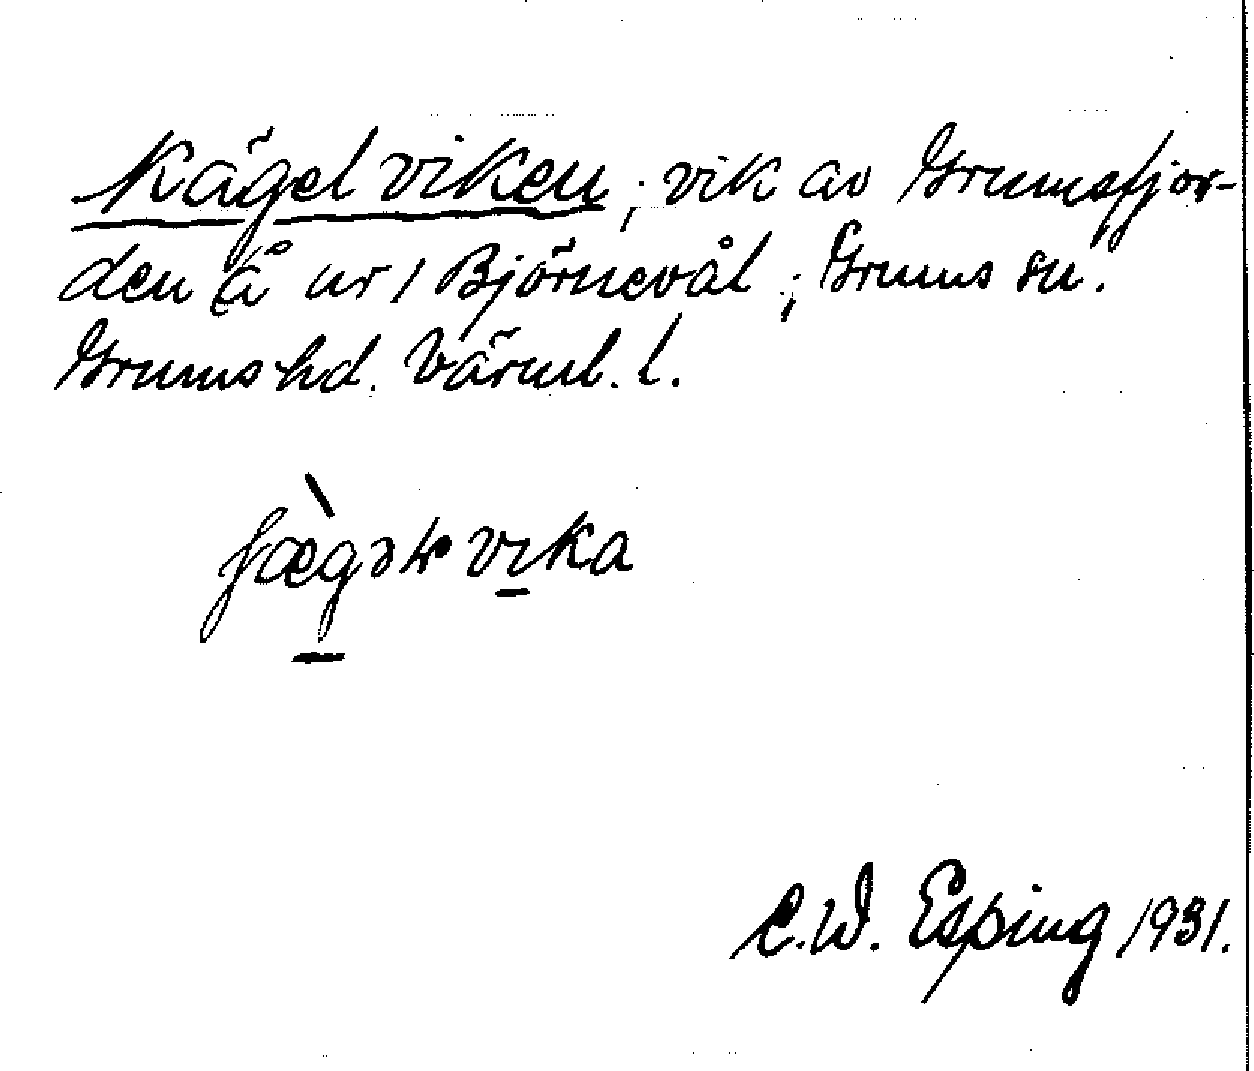 Kägelviken; vik av Grumsfjor-
den å nr 1 Björnevål; Grums sn.
Grums hd. Värml. l.
C.W. Esping 1931.